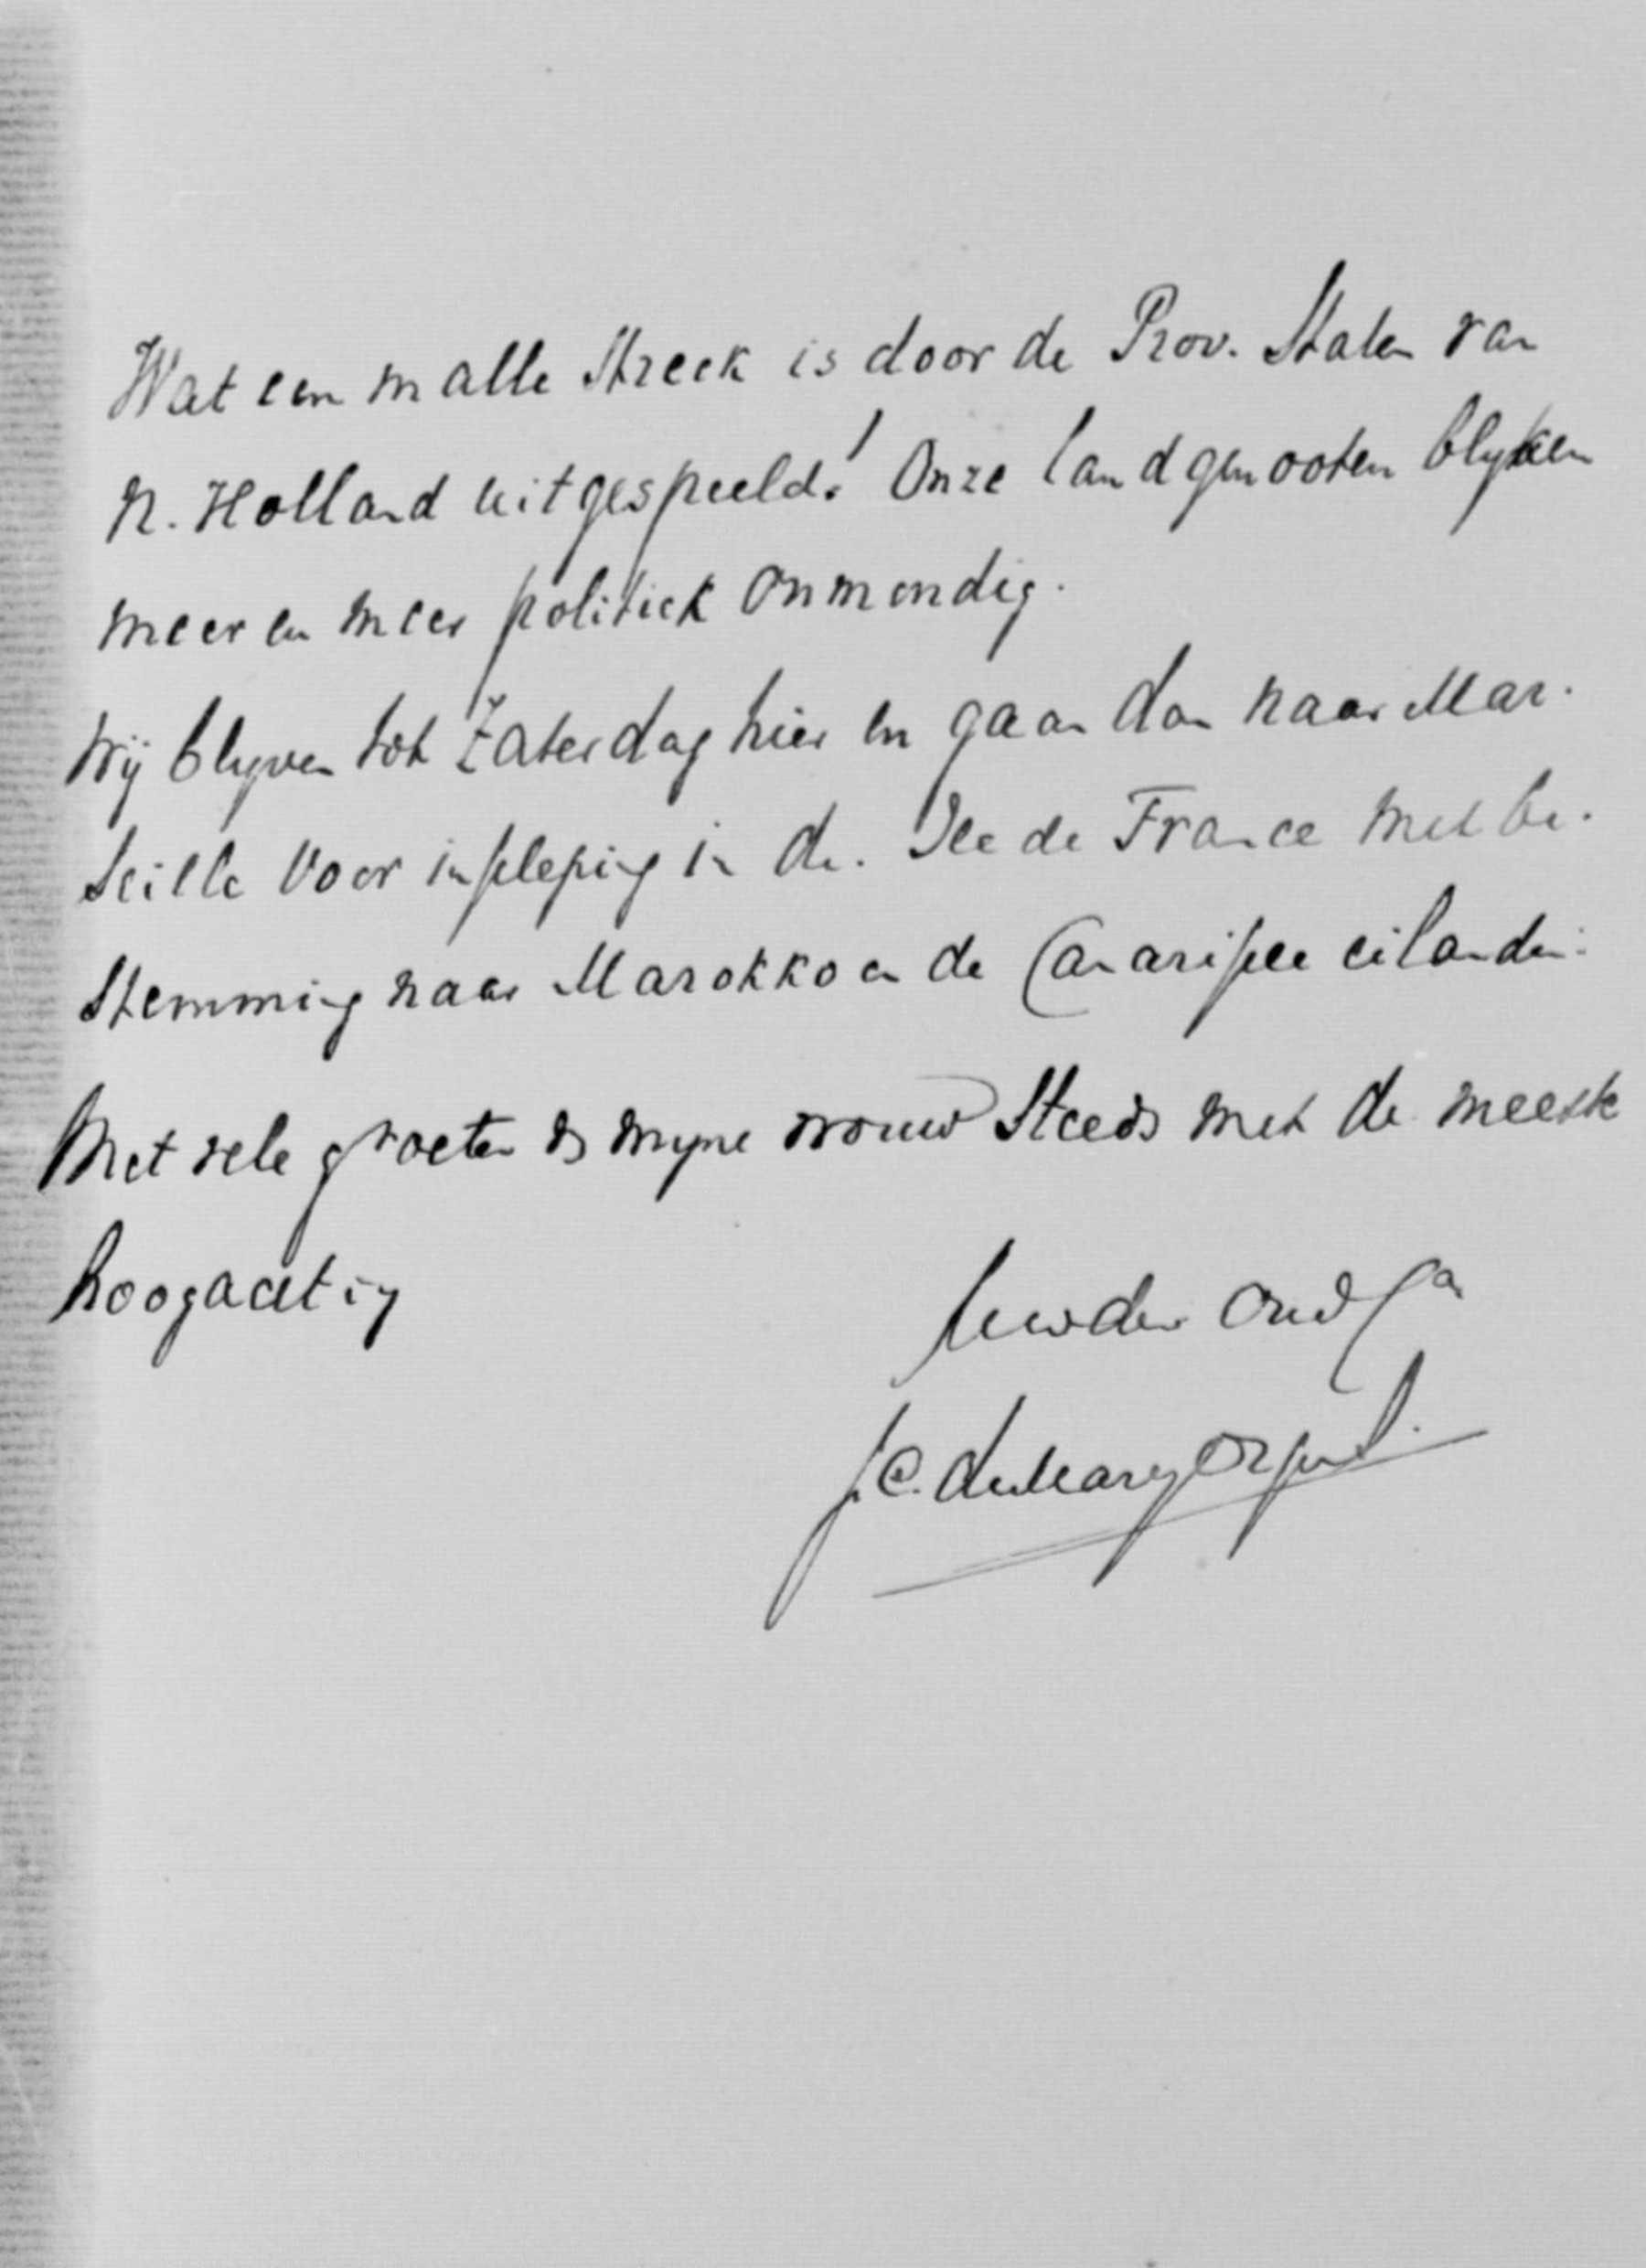 Wat een malle streek is door de Prov. Staten van
N. Holland uitgespeeld! Onze landgenooten blyken
meer en meer politiek onmondig.
Wij blyven tot Zaterdag hier en gaan dan naar Mar-
seille voor inscheping in de Ile de France met be-
stemming naar Marokko en de Canarische eilanden.
Met vele groeten os myne vrouw steeds met de meeste
hoogachting
Uwder
J.C.